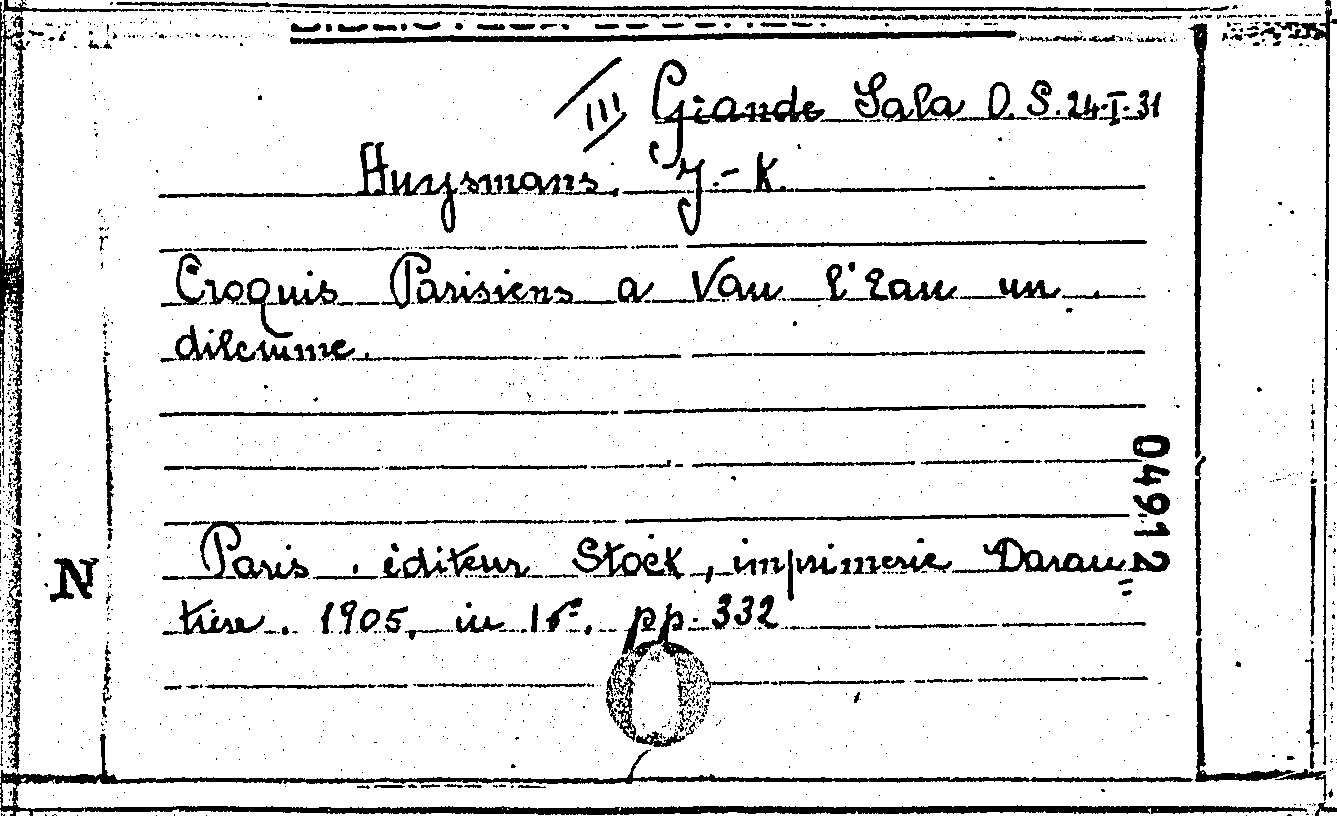 III Grande Sala O. S. 24·I·31
Huysmans. J.-K.
Croquis Parisiens a Vau l'Eau un
dilemme.
04912
N
Paris. éditeur Stock, imprimerie Daran=
tière. 1905, in 16º. pp. 332